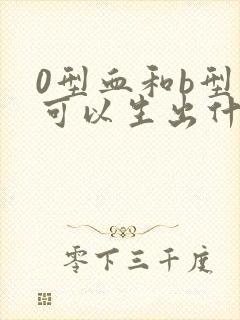 0型血和b型
可以生出什
零下三千度